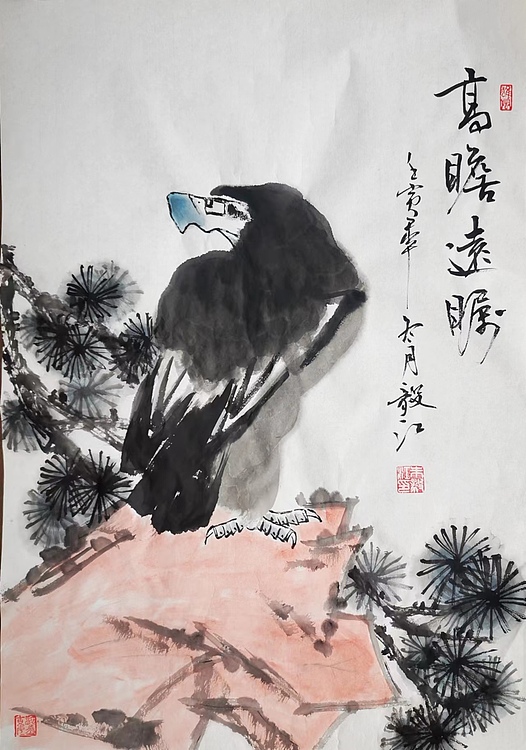 高瞻遠瞩
壬寅年冬月毅江